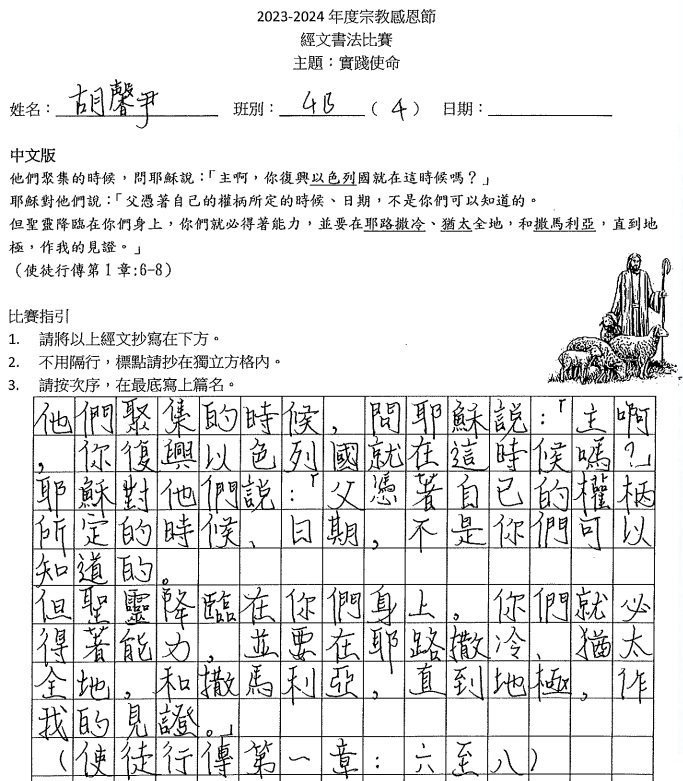 2023-2024 年度宗教感恩節
經文書法比賽
主題：實踐使命
姓名：胡馨尹 班別：4B（4） 日期：
中文版
他們聚集的時候，問耶穌說：「主啊，你復興以色列國就在這時候嗎？」
耶穌對他們說：「父憑著自己的權柄所定的時候、日期，不是你們可以知道的。
但聖靈降臨在你們身上，你們就必得著能力，並要在耶路撒冷、猶太全地，和撒馬利亞，直到地
極，作我的見證。」
（使徒行傳第 1 章:6-8）
比賽指引
1. 請將以上經文抄寫在下方。
2. 不用隔行，標點請抄在獨立方格內。
3. 請按次序，在最底寫上篇名。
他們聚集的時候，問耶穌說：「主啊
，你復興以色列國就在這時候嗎？」
耶穌對他們說：「父憑著自己的權柄
所定的時候、日期，不是你們可以
知道的。
但聖靈降臨在你們身上。你們就必
得著能力，並要在耶路撒冷、猶太
全地，和撒馬利亞，直到地極，作
我的見證。」
（使徒行傳第一章：六至八）